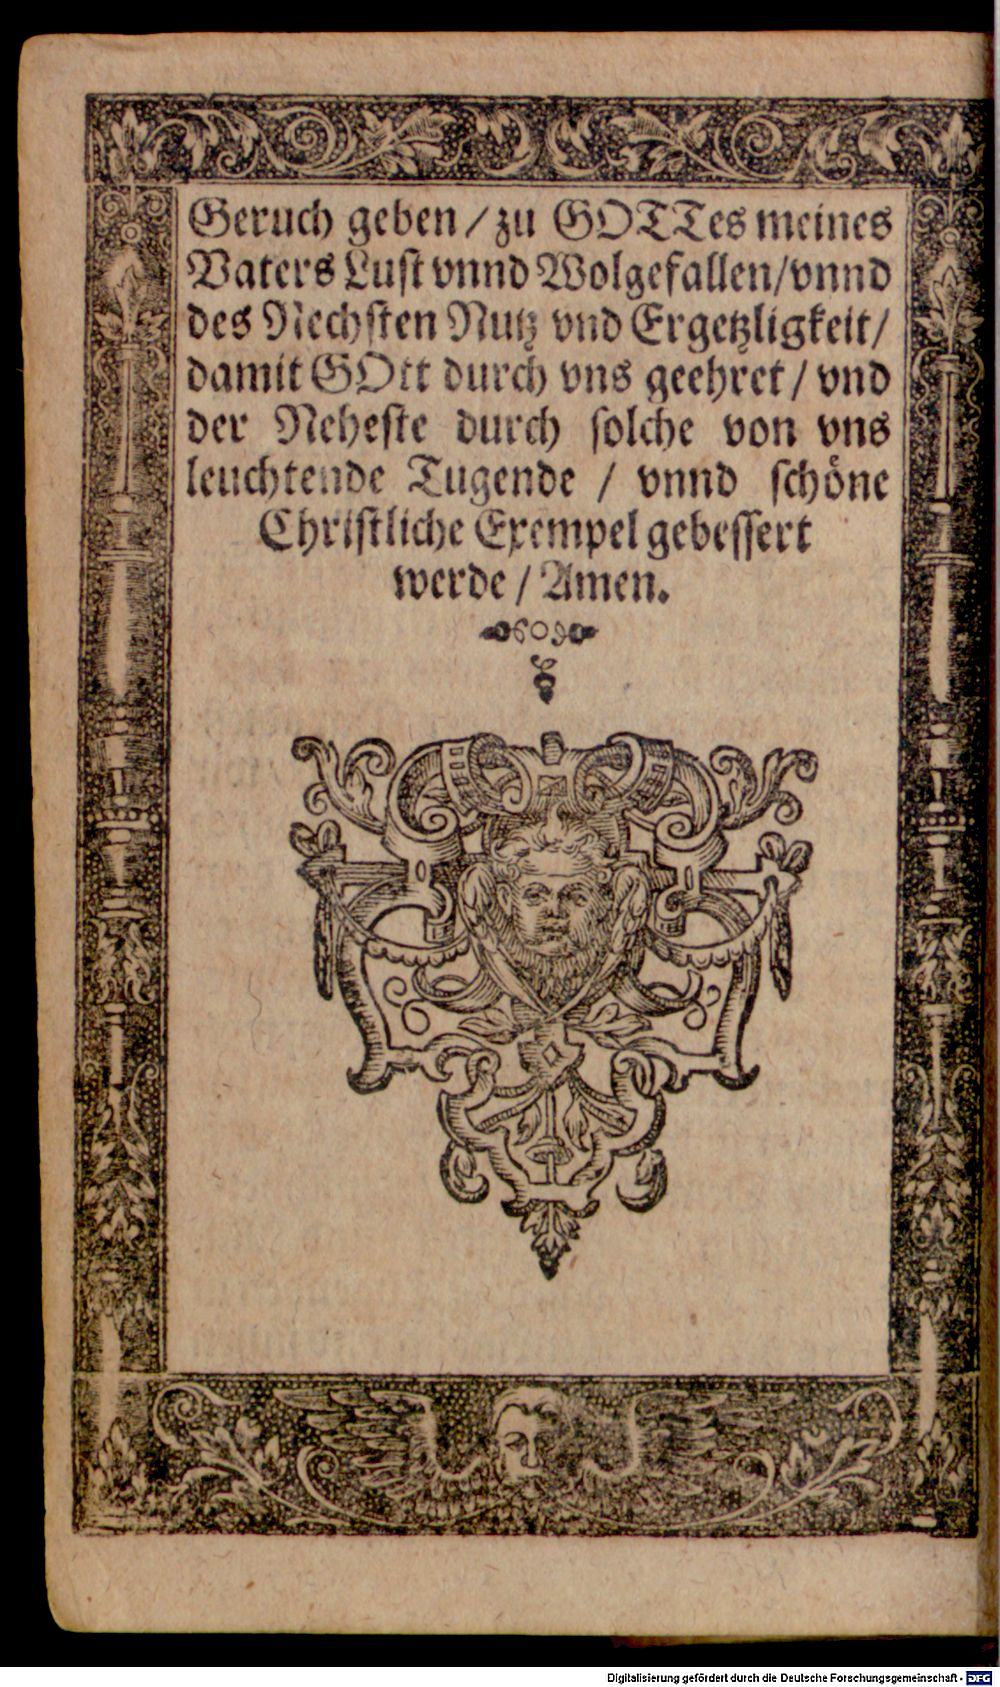 Geruch geben / zu GOTTes meines
Vaters Lust vnnd Wolgefallen / vnnd
des Nechsten Nutz vnd Ergetzligkeit /
damit GOtt durch vns geehret / vnd
der Neheste durch solche von vns
leuchtende Tugende / vnnd schöne
Christliche Exempel gebessert
werde / Amen.
Digitalisierung gefördert durch die Deutsche Forschungsgemeinschaft - DFG